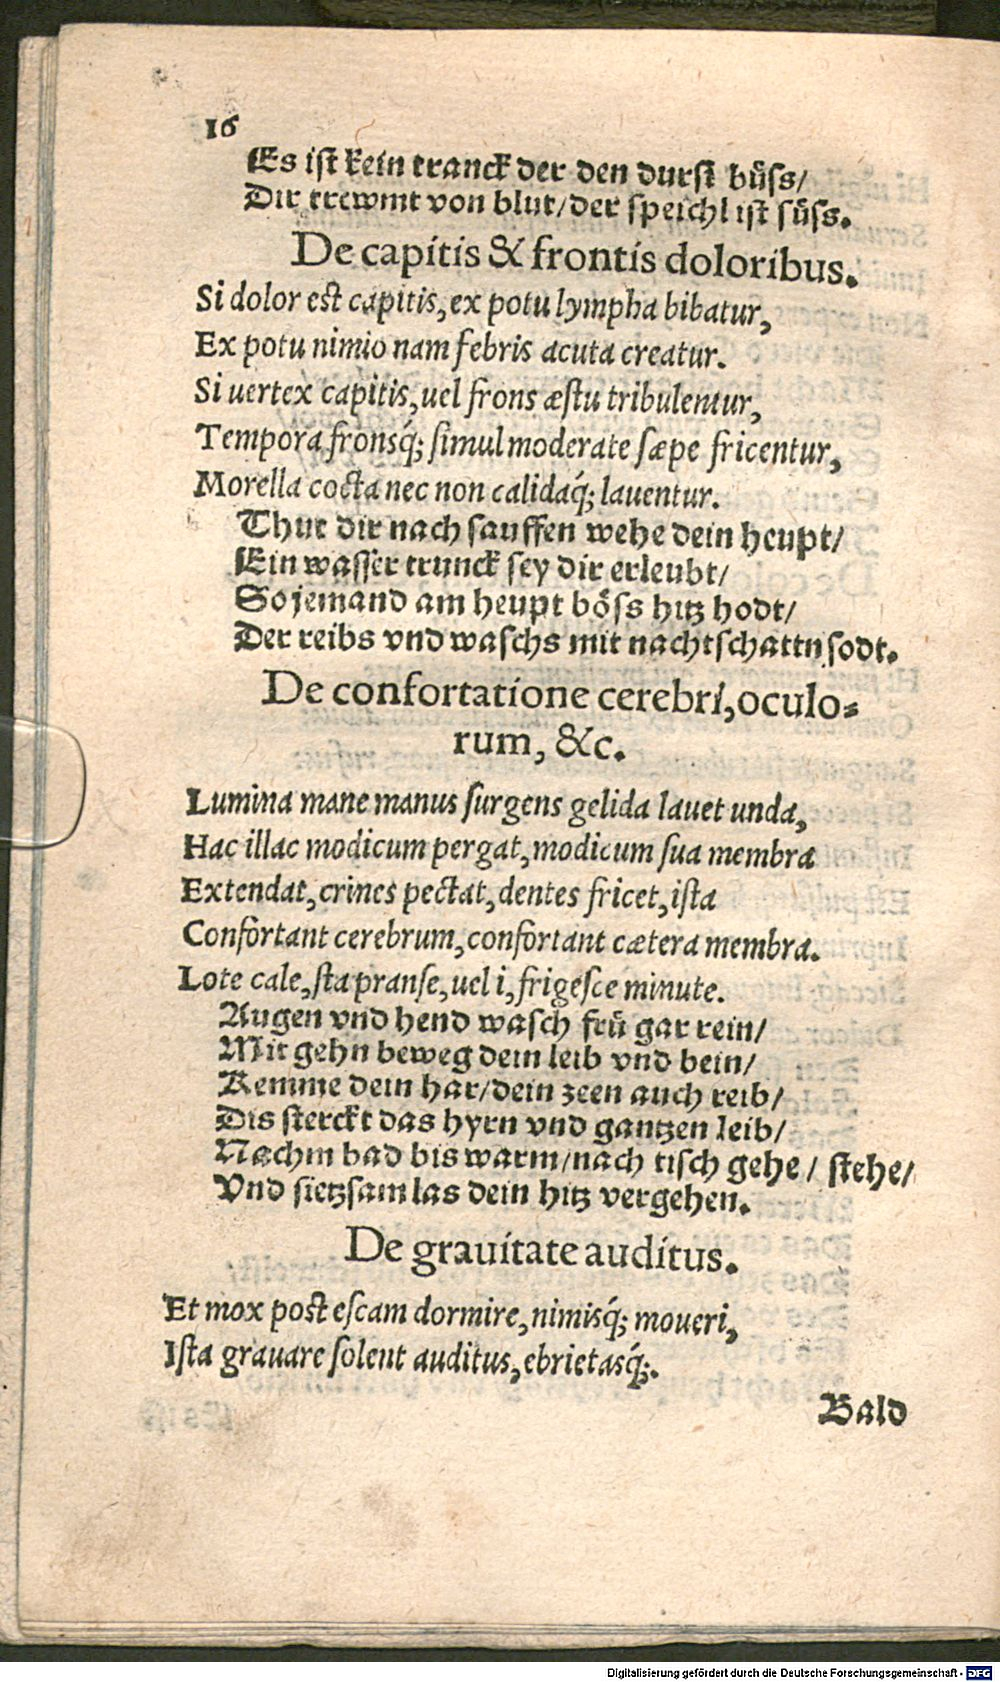 16
Es ist kein tranck der den durst büss/
Dir trewmt von blut/der speichl ist süss.
De capitis & frontis doloribus.
Si dolor est capitis, ex potu lympha bibatur,
Ex potu nimio nam febris acuta creatur.
Si uertex capitis, uel frons æstu tribulentur,
Tempora fronsq́; simul moderate sæpe fricentur,
Morella cocta nec non calidaq́; lauentur.
Thut dir nach sauffen wehe dein heupt/
Ein wasser trunck sey dir erleubt/
So jemand am heupt böss hitz hodt/
Der reibs vnd waschs mit nachtschattn sodt.
De confortatione cerebri, oculo-
rum, &c.
Lumina mane manus surgens gelida lauet unda,
Hac illac modicum pergat, modicum sua membra
Extendat, crines pectat, dentes fricet, ista
Confortant cerebrum, confortant cætera membra.
Lote cale, sta pranse, uel i, frigesce minute.
Augen vnd hend wasch frü gar rein/
Mit gehn beweg dein leib vnd bein/
Kemme dein har/dein zeen auch reib/
Dis sterckt das hyrn vnd gantzen leib/
Nachm bad bis warm/nach tisch gehe / stehe/
Vnd sietzsam las dein hitz vergehen.
De grauitate auditus.
Et mox post escam dormire, nimisq́; moueri,
Ista grauare solent auditus, ebrietasq́;.
Bald
Digitalisierung gefördert durch die Deutsche Forschungsgemeinschaft - DFG